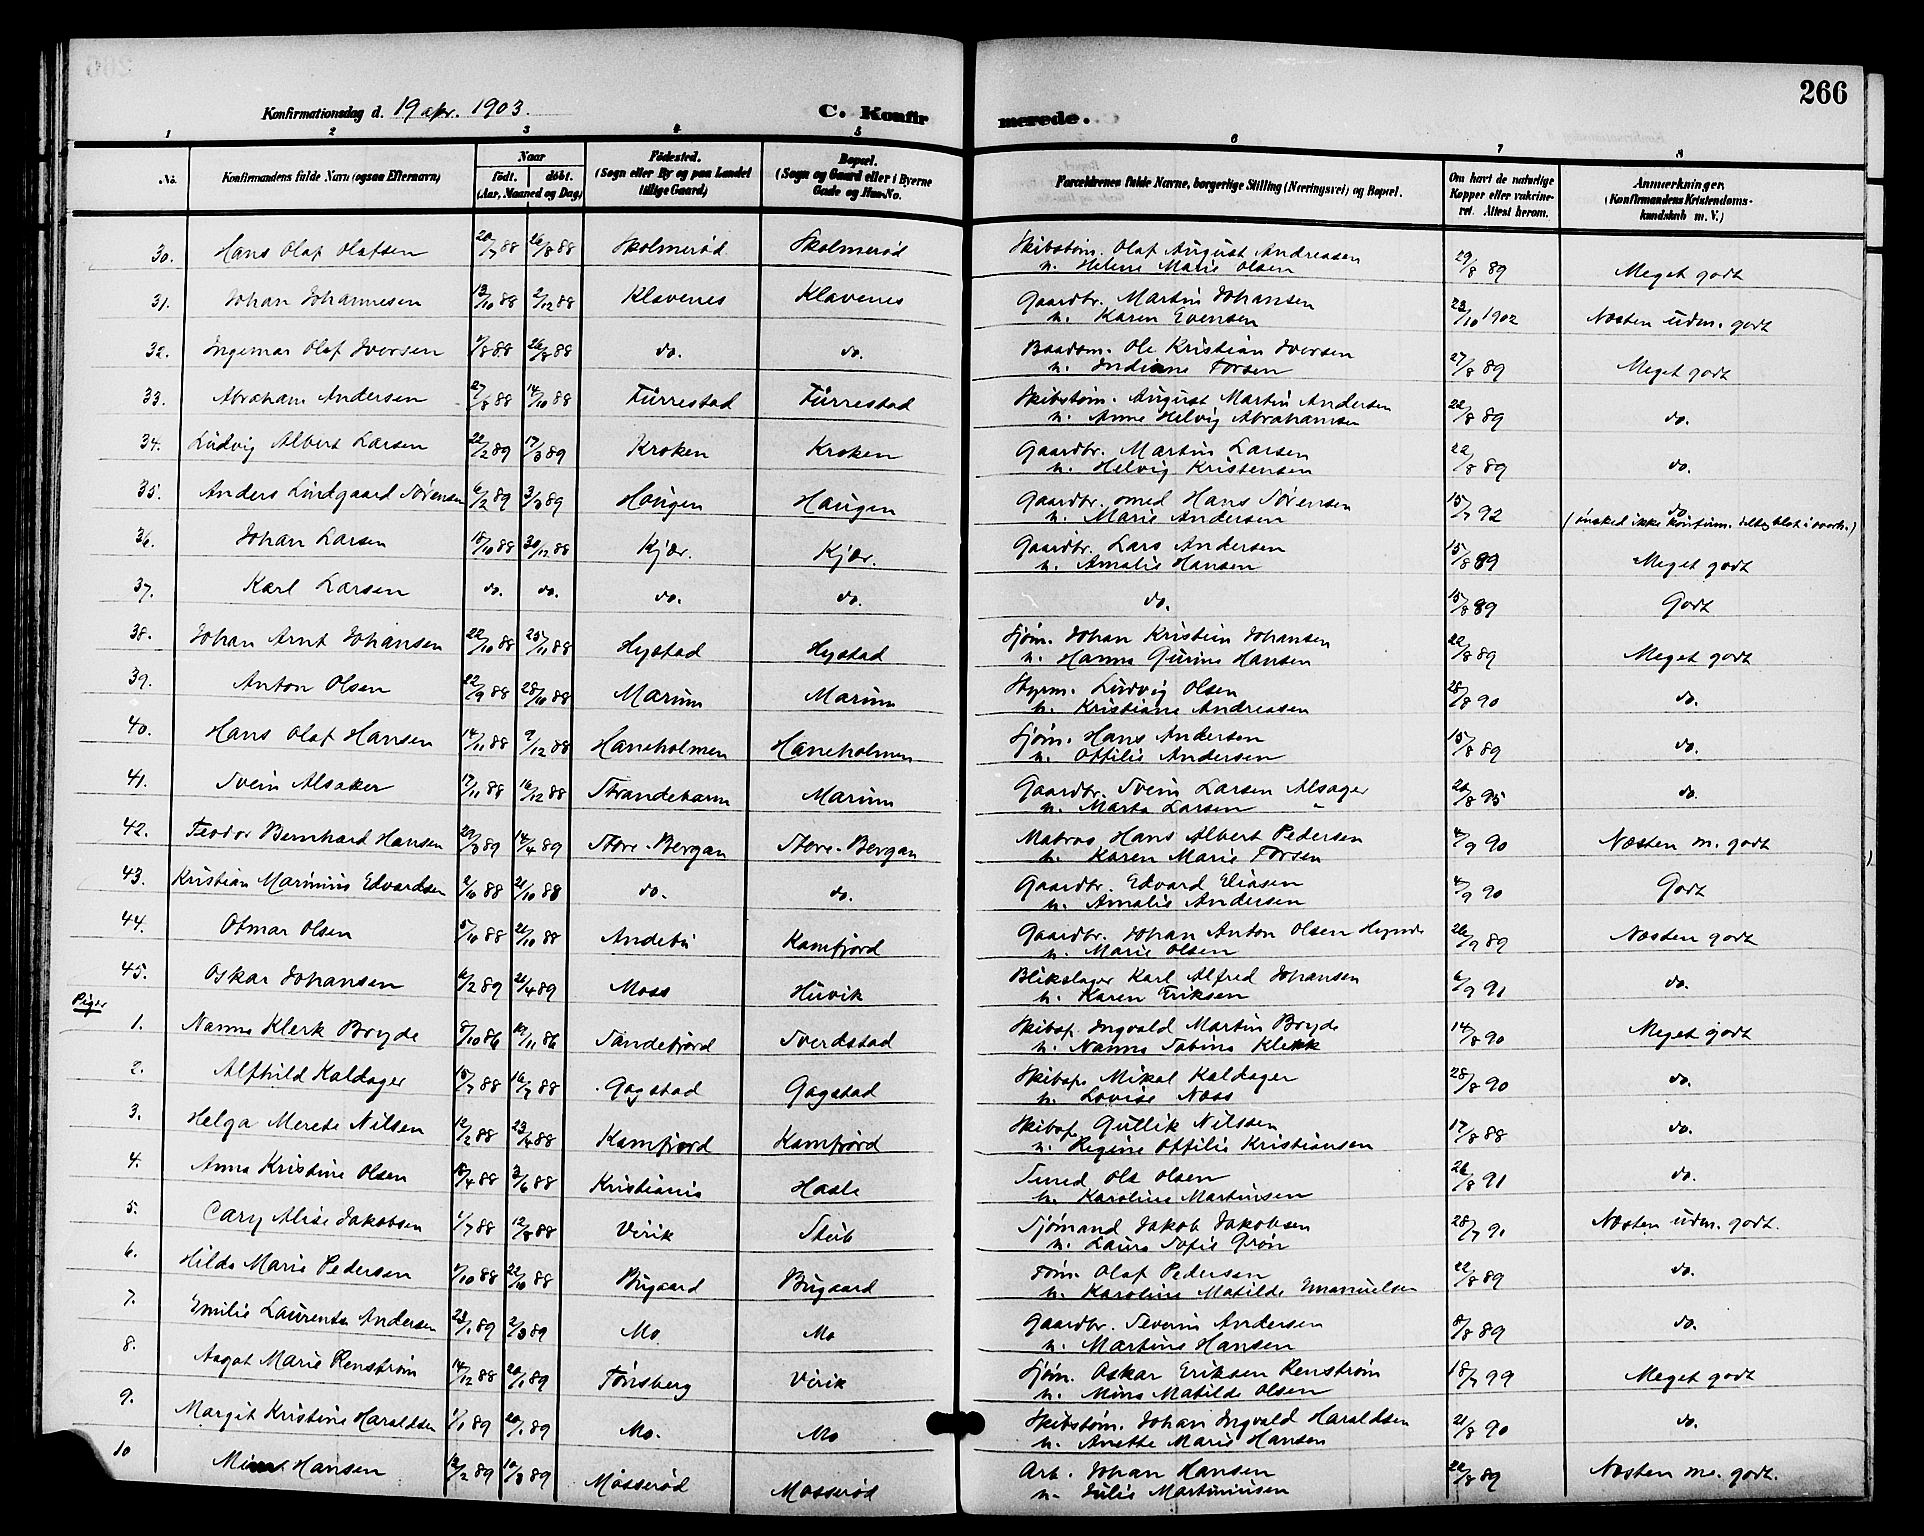 266
Konfirmationsdag d. 19 apr. 1903.
C. Konfirmerede.
1 2 3 4 5 6 7 8
No.
Konfirmandens fulde Navn (ogsaa Efternavn)
Naar
født. døbt.
(Aar, Maaned og Dag)
Fødested.
(Sogn eller By og paa Landet
tillige Gaard)
Bopæl.
(Sogn og Gaard eller i Byerne
Gade og Hus-No.
Forældrenes fulde Navne, borgerlige Stilling (Næringsvei) og Bopæl.
Om havt de naturlige
Kopper eller vakcine-
ret. Attest herom.
Anmærkninger.
(Konfirmandens Kristendoms-
kundskab m. V.)
30. Hans Olaf Olafsen 20/7 88 26/8 88 Skolmerød Skolmerød Skibstøm. Olaf August Andreasen 29/8 89 Meget godt
u. Helene Marie Olsen
31. Johan Johannesen 13/10 88 2/12 88 Klavenes Klavenes Gaardbr. Martin Johansen 23/10 1902 Næsten udm. godt
u. Karen Evensen
32. Ingemar Olaf Iversen 1/8 88 26/8 88 do. do. Baadsm. Ole Kristian Iversen 27/8 89 Meget godt
u. Indiane Torsen
33. Abraham Andersen 27/8 88 14/10 88 Furrestad Furrestad Skibstøm. August Martin Andersen 22/8 89 do.
u. Anne Helvig Abrahamsen
34. Ludvig Albert Larsen 22/2 89 17/3 89 Kroken Kroken Gaardbr. Martin Larsen 22/8 89 do.
u. Helvig Kristensen
35. Anders Lindgaard Sørensen 6/2 89 3/3 89 Haugen Haugen Gaardbr. smed Hans Sørensen 15/7 92 do.
u. Marie Andersen (ønsked ikke konfirm.
36. Johan Larsen 18/10 88 30/12 88 Kjær. Kjær. Gaardbr. Lars Andersen 15/8 89 Meget godt
u. Amalie Hansen
37. Karl Larsen do. do. do. do. do. 15/8 89 Godt
38. Johan Arnt Johansen 22/10 88 25/11 88 Hystad Hystad Sjøm. Johan Kristian Johansen 22/8 89 Meget godt
u. Hanna Gurine Hansen
39. Anton Olsen 22/9 88 28/10 88 Marum Marum Styrm. Ludvig Olsen 28/8 90 do.
u. Kristiane Andreasen
40. Hans Olaf Hansen 14/11 88 9/12 88 Haneholmen Haneholmen Sjøm. Hans Andersen 15/8 89 do.
u. Ottilie Andersen
41. Svein Alsaker 17/11 88 16/12 88 Strandebarm Marum Gaardbr. Svein Larsen Alsager 20/8 95 do.
u. Marta Larsen "
42. Teodor Bernhard Hansen 20/3 89 14/4 89 Store-Bergan Store-Bergan Matros Hans Albert Pedersen 4/9 90 Næsten m. godt
u. Karen Marie Torsen
43. Kristian Marinius Edvardsen 2/10 88 21/10 88 do. do. Gaardbr. Edvard Eliasen 4/9 90 Godt
u. Amalie Andersen
44. Otmar Olsen 5/10 88 21/10 88 Andebu Kamfjord Gaardbr. Johan Anton Olsen 26/9 89 Næsten godt
u. Marie Olsen
45. Oskar Johansen 6/2 89 21/4 89 Moss Huvik Blikslager Karl Alfred Johansen 6/9 91 do.
u. Karen Eriksen
Piger
1. Nanna Klerk Bryde 8/10 86 19/11 86 Sandefjord Sverdstad Skibsf. Ingvald Martin Bryde 14/8 90 Meget godt
u. Nanna Sabina Klerk
2. Alfhild Kaldager 15/7 88 16/7 88 Gogstad Gogstad Skibsf. Mikal Kaldager 28/8 90 do.
u. Lovise Næss
3. Helga Merete Nilsen 12/2 88 23/4 88 Kamfjord Kamfjord Skibsf. Gullik Nilssen 17/8 88 do.
u. Regine Ottilie Kristiansen
4. Anna Kristine Olsen 18/4 88 3/6 88 Kristiania Hasle Smed Ole Olsen 26/8 91 do.
u. Karoline Martinsen
5. Cary Alise Jakobsen 1/7 88 12/8 88 Virik Stub Sjømand Jakob Jakobsen 28/7 91 Næsten udm. godt.
u. Laura Sofie Grøn
6. Hilda Marie Pedersen 1/10 88 22/10 88 Bugaard Bugaard Tøm. Olaf Pedersen 22/8 89 do.
u. Karoline Matilde Emanuelsen
7. Emilie Laurentse Andersen 23/1 89 2/3 89 Mo Mo Gaardbr. Severin Andersen 8/8 89 do.
u. Martine Hansen
8. Aagot Marie Renstrøm 14/12 88 20/1 89 Tønsberg Virik Sjøm. Oskar Eriksen Renstrøm 18/7 99 Meget godt
u. Mina Matilde Olsen
9. Margit Kristine Haraldsen 1/1 89 20/1 89 Mo. Mo Skibstøm. Johan Ingvald Haraldsen 21/8 90 do.
u. Anette Marie Hansen
10 Hansen 12/2 89 10/3 89 Mosserød Mosserød Arb. Johan Hansen 22/8 89 Næsten m. godt.
u. Julie Martiniusen